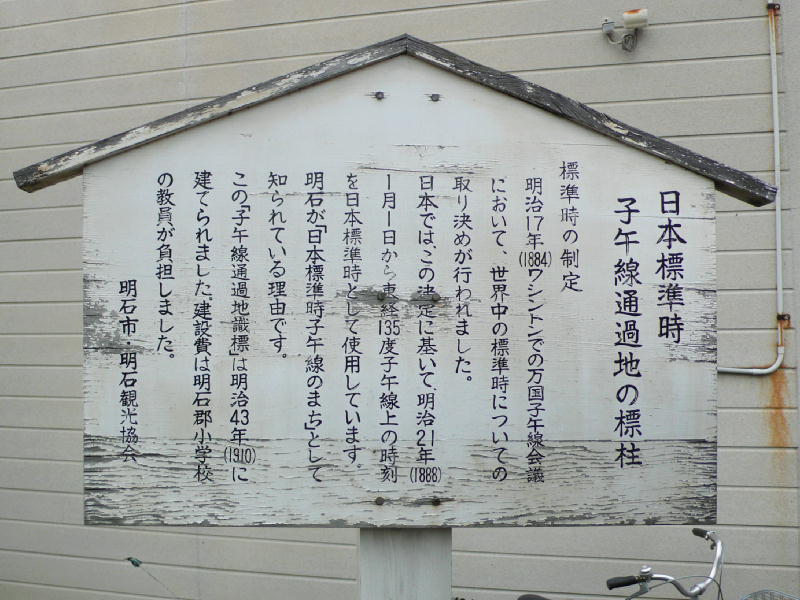 日本標準時
子午線通過地の標柱
標準時の制定
明治17年(1884)ワシントンでの万国子午線会議
において、世界中の標準時についての
取り決めが行われました。
日本では、この決定に基いて、明治21年(1888)
1月1日から東経135度子午線上の時刻
を日本標準時として使用しています。
明石が「日本標準時子午線のまち」として
知られている理由です。
この「子午線通過地識標」は明治43年(1910)に
建てられました。建設費は明石郡小学校
の教員が負担しました。
明石市・明石観光協会